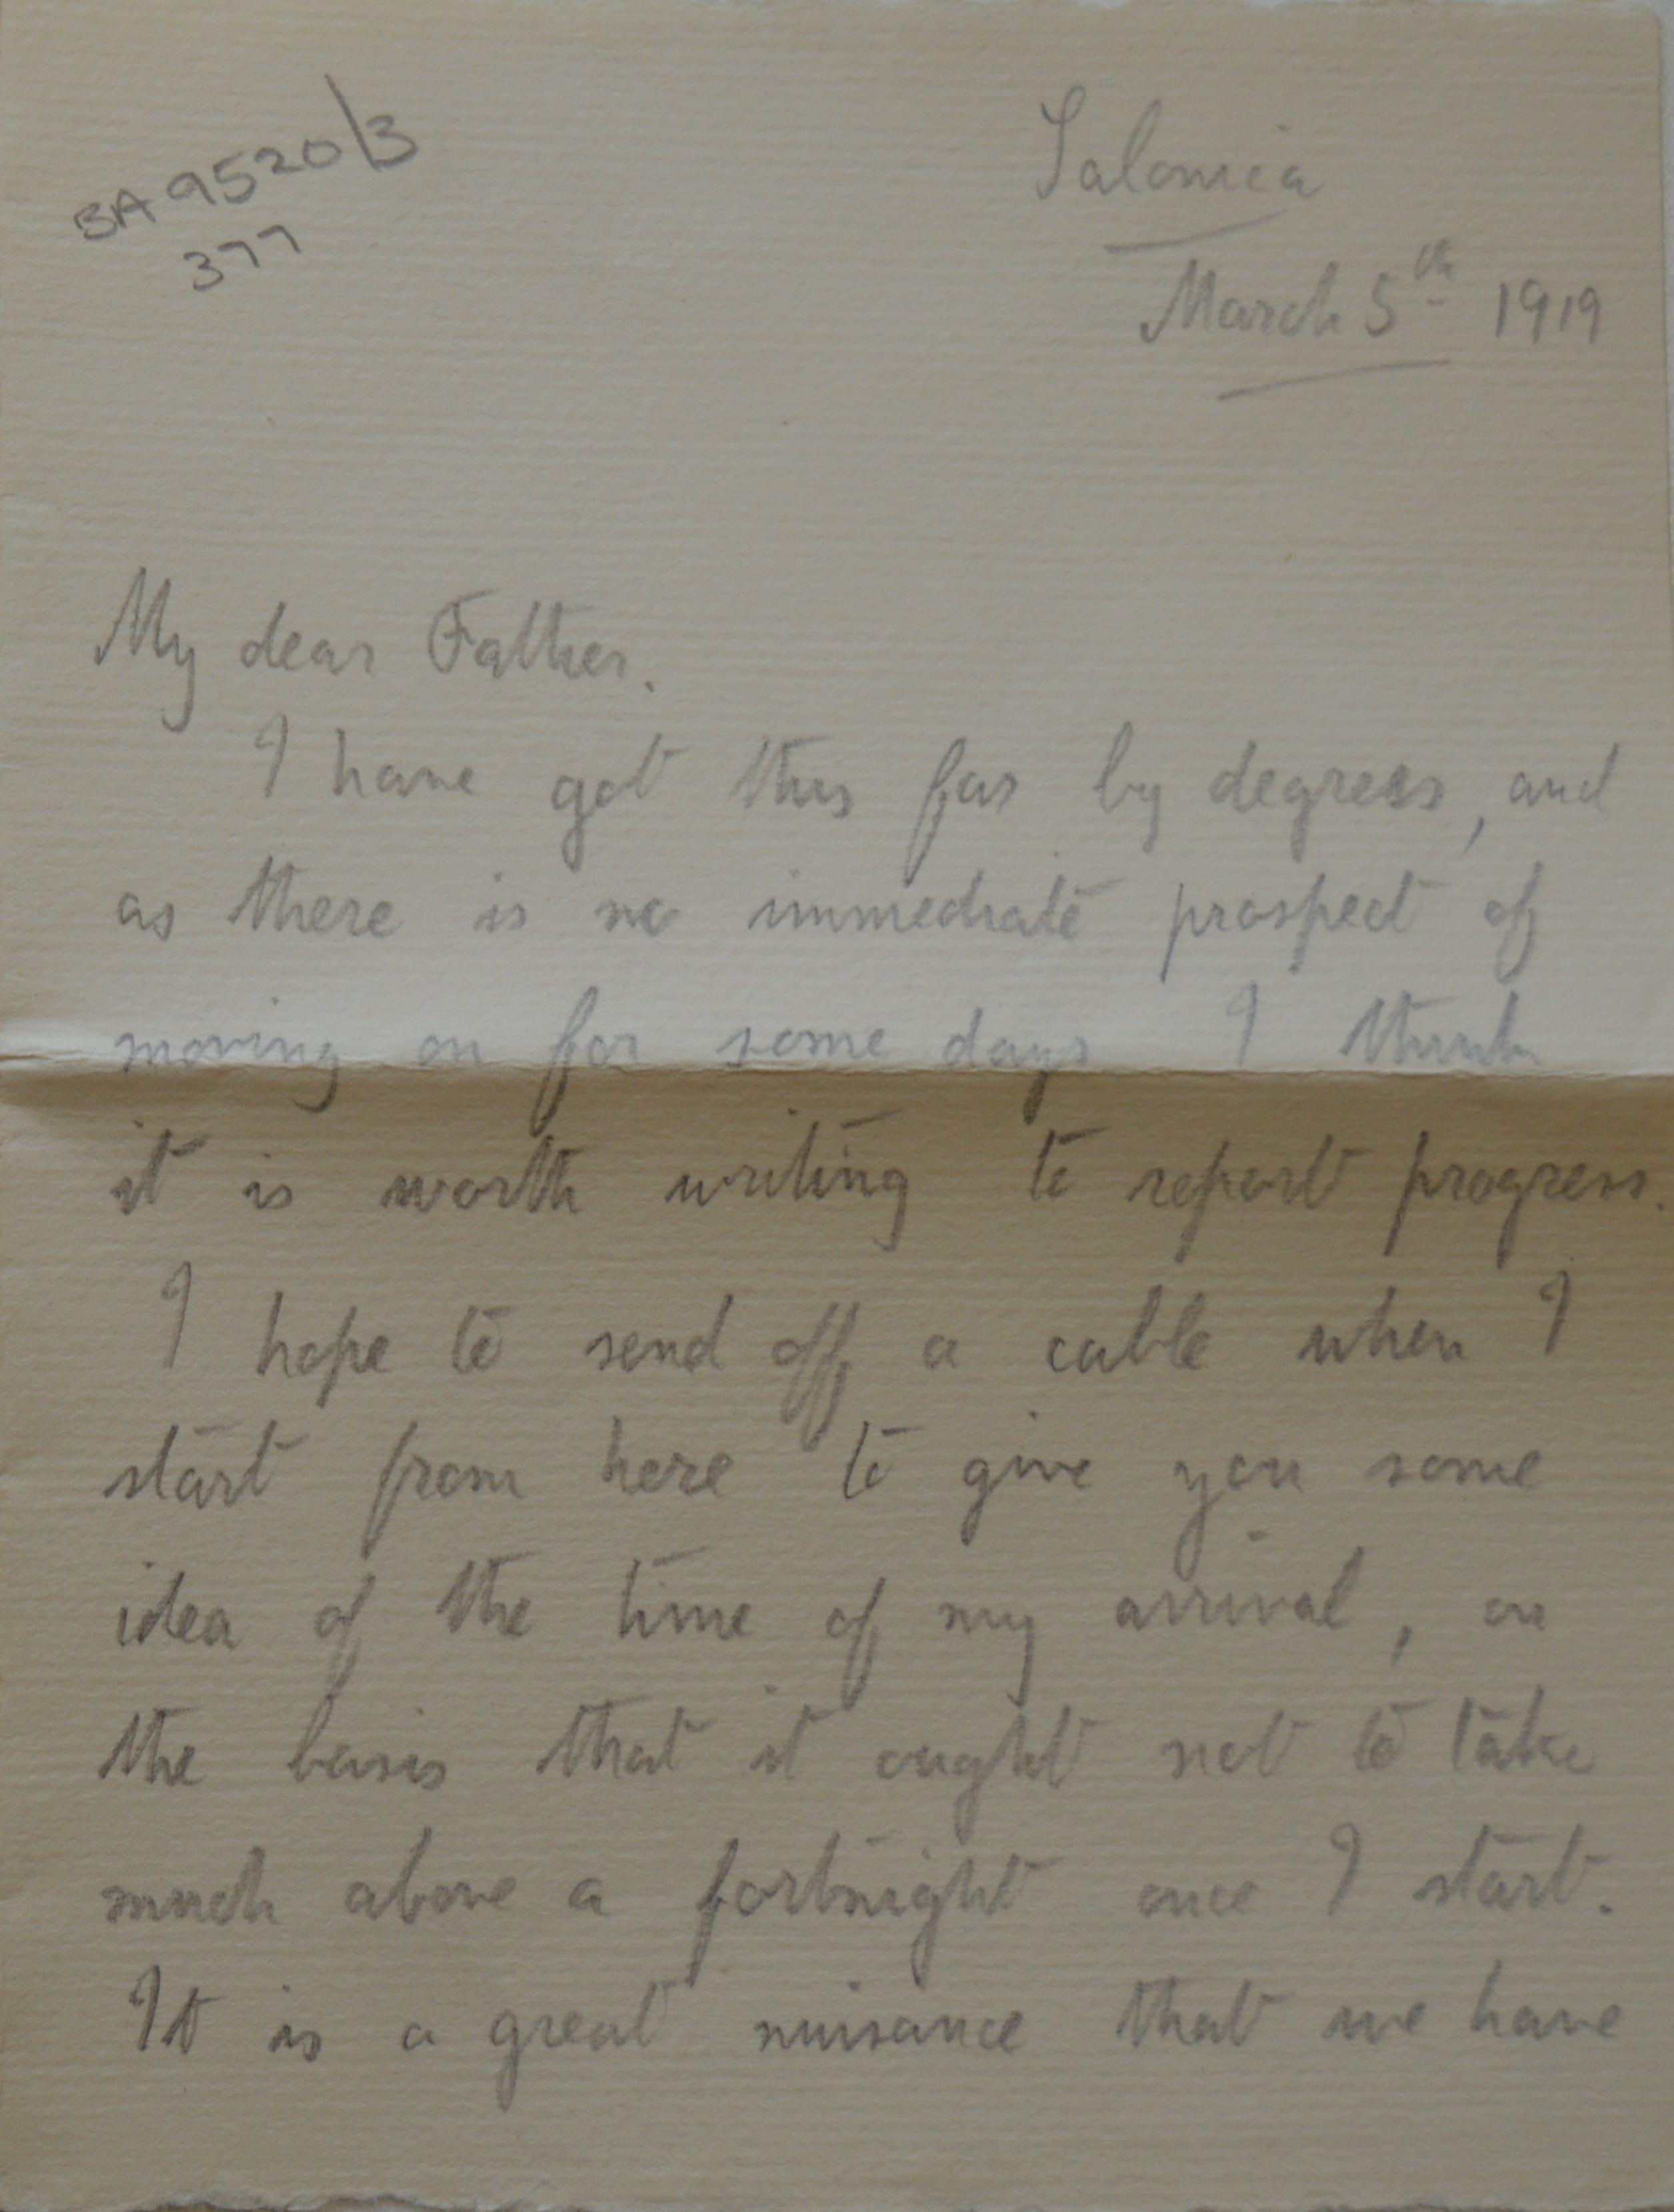 BA 9520/3
377
Salonica
March 5th 1919
My dear Father.
I have got thus far by degrees, and
as there is no immediate prospect of
moving on for some days I think
it is worth writing to report progress.
I hope to send off a cable when I
start from here to give you some
idea of the time of my arrival, on
the basis that it ought not to take
much above a fortnight once I start.
It is a great nuisance that we have